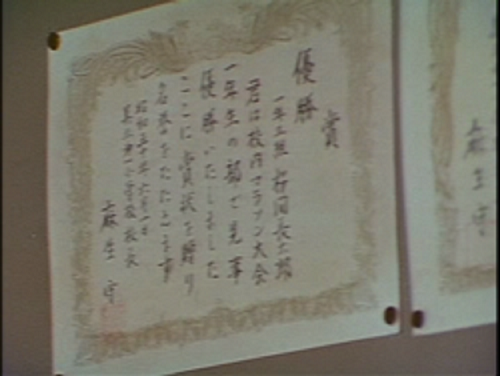 優勝賞
一年三組
君は校内マラソン大会
一年生の部で見事
優勝いたしました
ここに賞状を贈り
名誉をたたえます
昭和五十年六月一日
第一小学校 校長
麻生 守
麻生 守